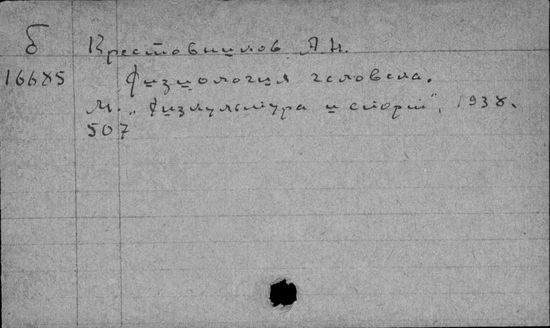 Б Крестовников А.Н.
16685 Физиология человека.
М. „Физкультура и спорт", 1938.
507